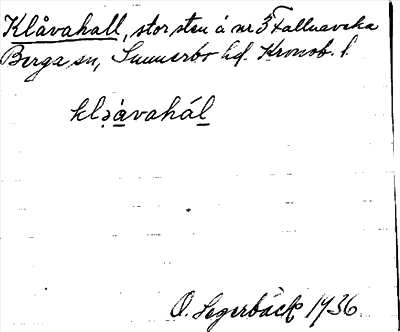 Klåvahall, stor sten å nr 3 Hallnaveka
Berga sn, Sunnerbo hd. Kronob. l.
klåvahál
O. Segerbäck 1936